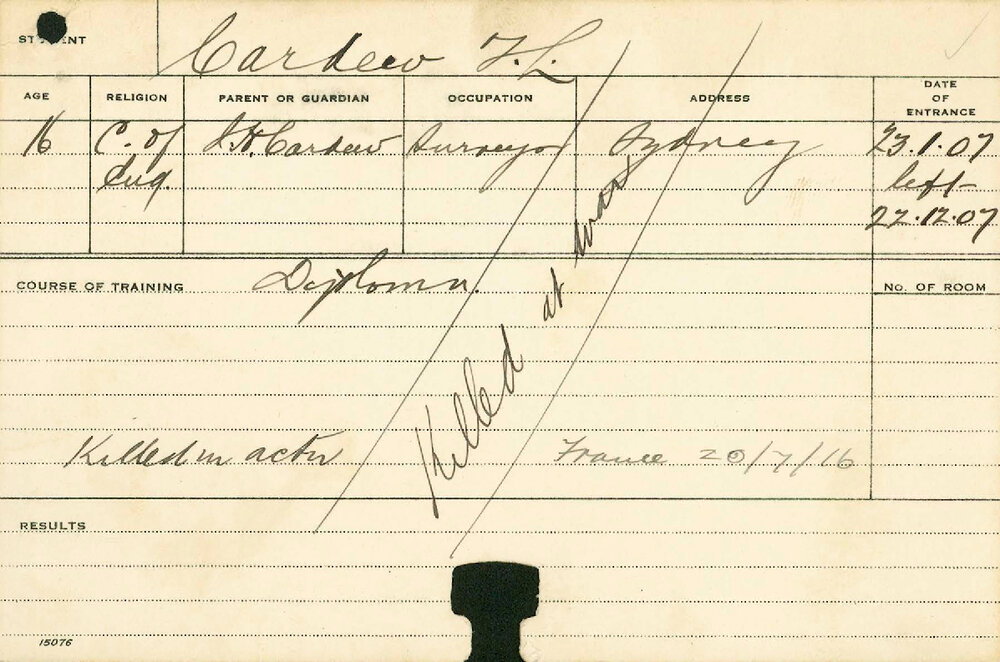 STUDENT Cardew F.L.
AGE RELIGION PARENT OR GUARDIAN OCCUPATION ADDRESS DATE OF ENTRANCE
16 C. of J.H. Cardew Surveyor Sydney 23.1.07
Eng. left
22.12.07
COURSE OF TRAINING Diploma. No. OF ROOM
Killed at war
Killed in actn France 20/7/16
RESULTS
15076